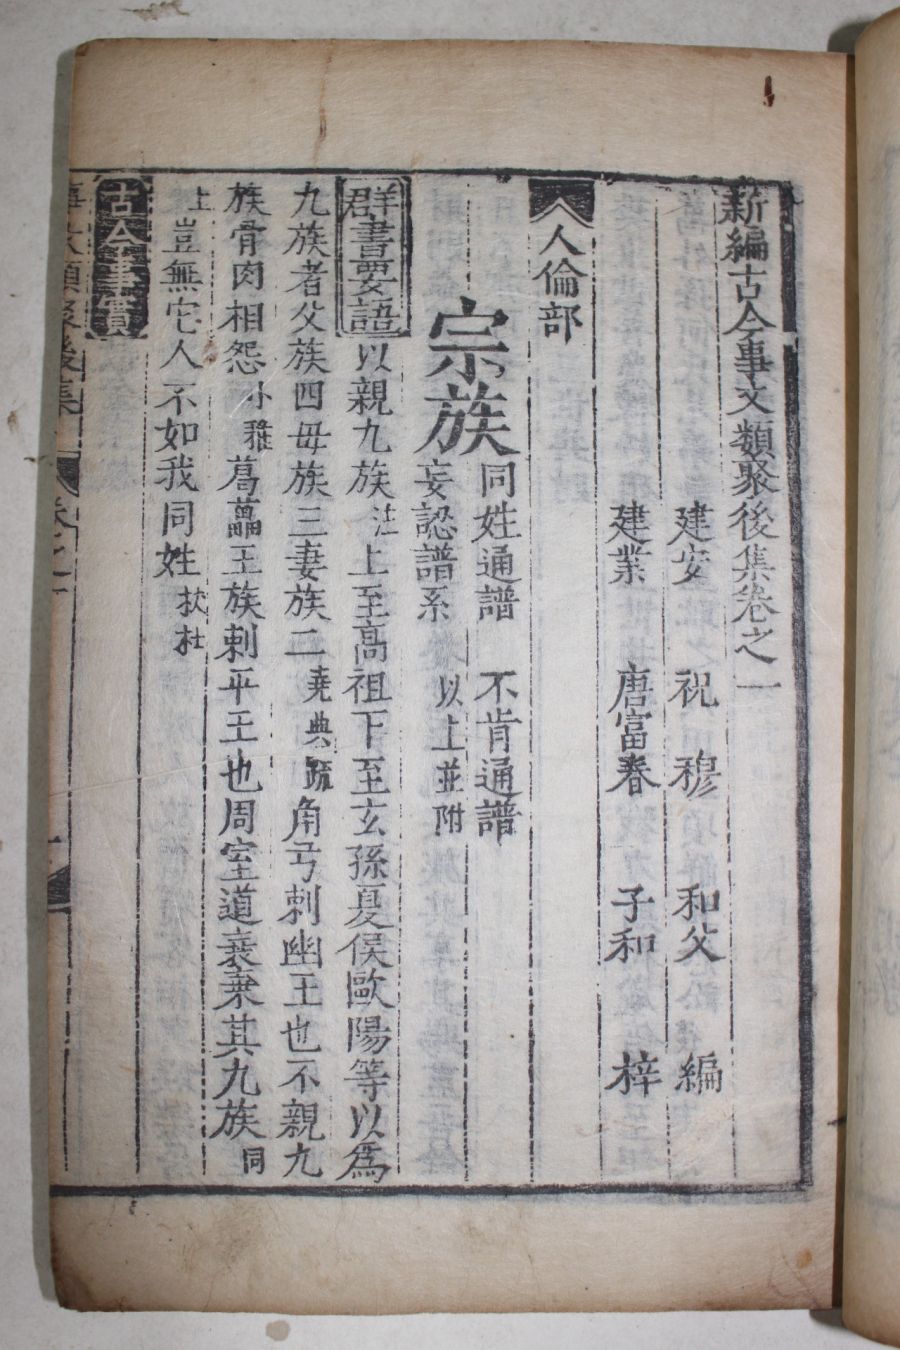 新編古今事文類聚後集卷之一
建安 祝 穆 和父 編
建業 唐富春 子和 梓
人倫部
宗族 同姓通譜 不肯通譜
妄認譜系 以上並附
群書要語 以親九族 註 上至高祖下至玄孫夏侯歐陽等以爲
九族者父族四毋族三妻族二 堯典疏 角弓刺幽王也不親九
族骨肉相怨 小雅 葛藟王族刺平王也周室道衰棄其九族 同
上 豈無它人不如我同姓 杕杜
古今事實
事文類聚後集 卷之一